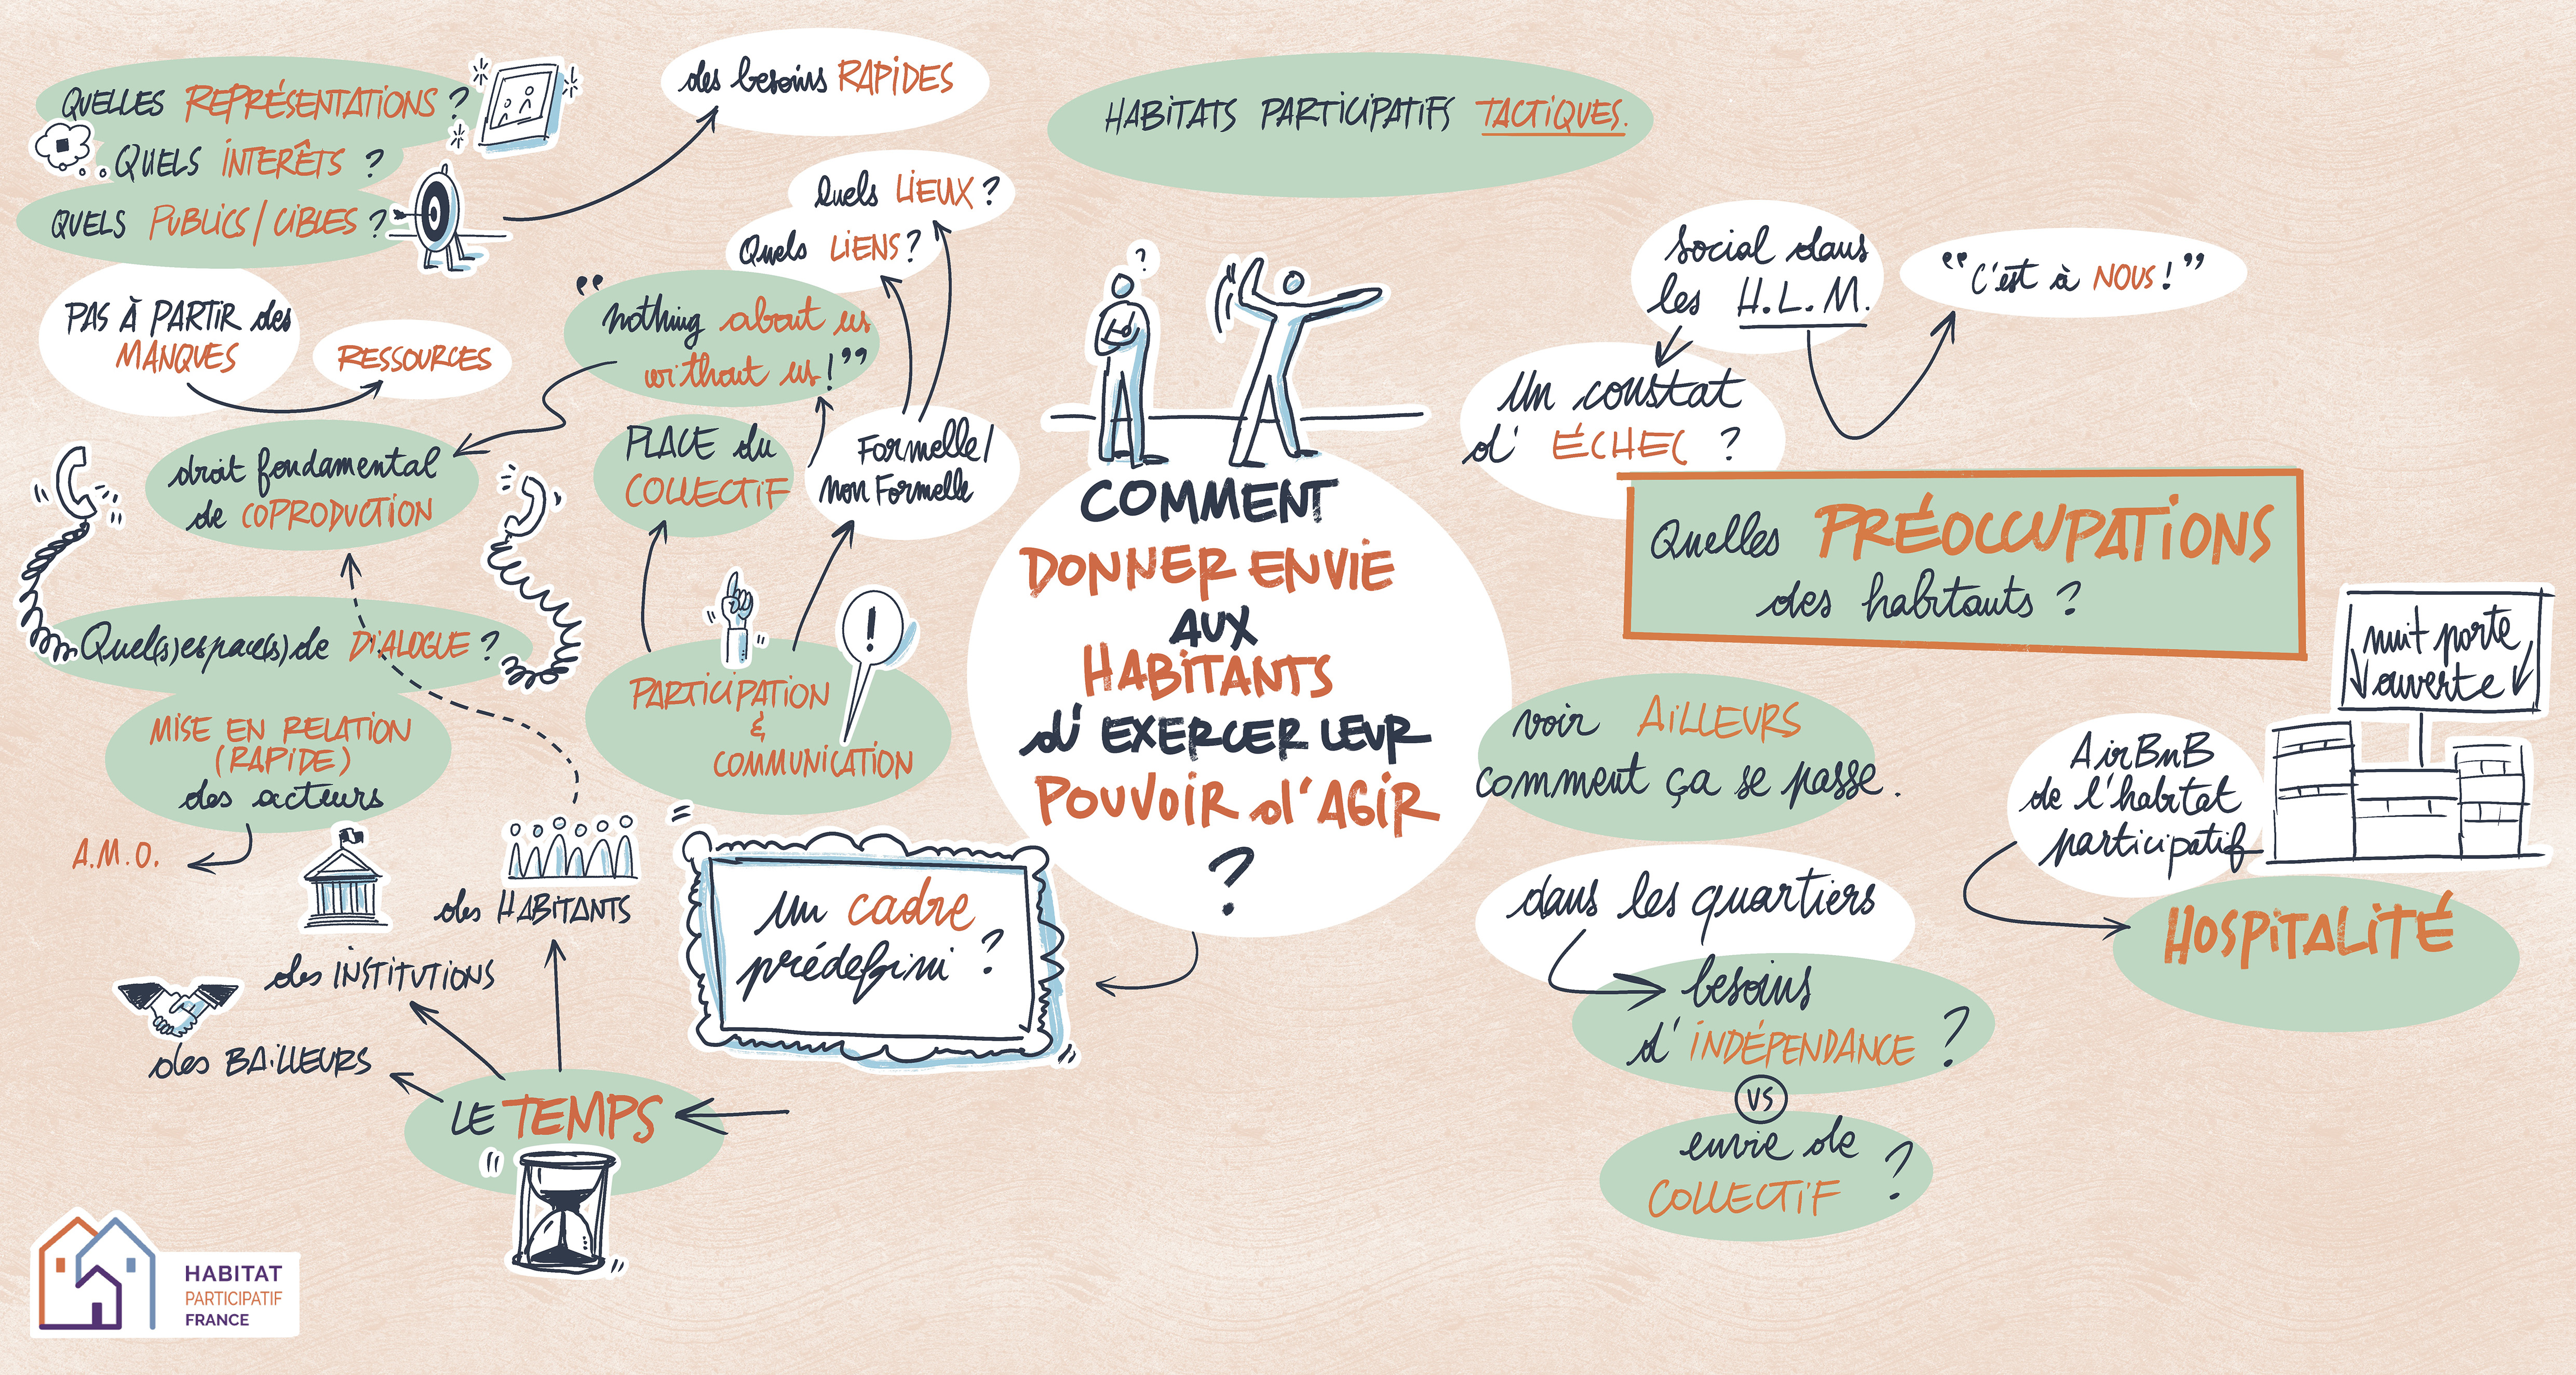 QUELLES REPRÉSENTATIONS ?
QUELS INTERÊTS ?
QUELS PUBLICS/CIBLES ?
des besoins RAPIDES
PAS À PARTIR des
MANQUES
RESSOURCES
Quels LIEUX ?
Quels LIENS ?
"nothing about us
without us!"
droit fondamental
de COPRODUCTION
PLACE du
COLLECTIF
Formelle/
non Formelle
Quel(s) espace(s) de DIALOGUE ?
MISE EN RELATION
(RAPIDE)
des acteurs
A.M.O.
PARTICIPATION
&
COMMUNICATION
!
des HABITANTS
des INSTITUTIONS
des BAILLEURS
LE TEMPS
un cadre
prédefini ?
HABITATS PARTICIPATIFS TACTIQUES.
?
COMMENT
DONNER ENVIE
AUX
HABITANTS
d'EXERCER LEUR
POUVOIR d'AGIR
?
social dans
les H.L.M.
"C'est à NOUS!"
Un constat
d'ÉCHEC ?
Quelles PRÉOCCUPATIONS
des habitants ?
voir AILLEURS
comment ça se passe.
nuit porte
ouverte
AirBnB
de l'habitat
participatif
HOSPITALITÉ
dans les quartiers
besoins
d'INDÉPENDANCE ?
VS
envie de
COLLECTIF ?
HABITAT
PARTICIPATIF
FRANCE